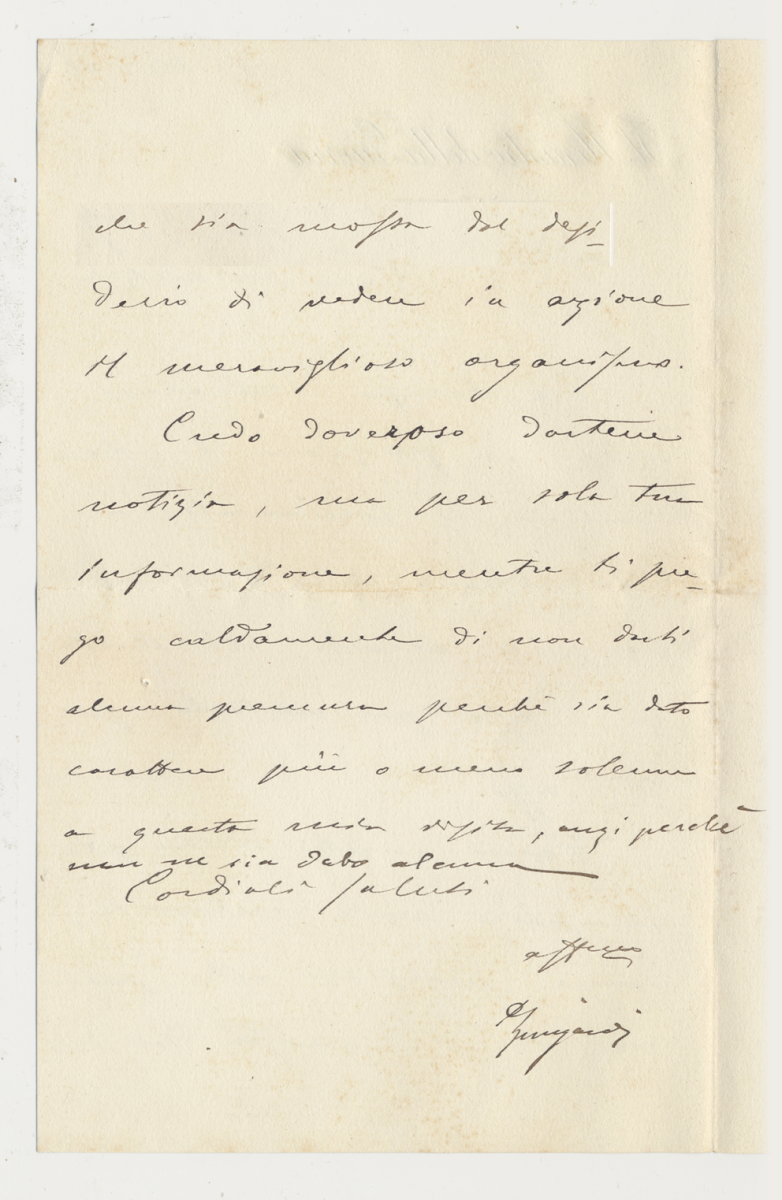 che sia mossa dal desi-
derio di vedere in azione
il meraviglioso organismo.
Credo doveroso dartene
notizia, ma per sola tua
informazione, mentre ti pre-
go caldamente di non darti
alcuna premura perchè sia dato
carattere più o meno solenne
a questa mia visita, anzi perchè
non ne sia dato alcuno
Cordiali saluti
affmo